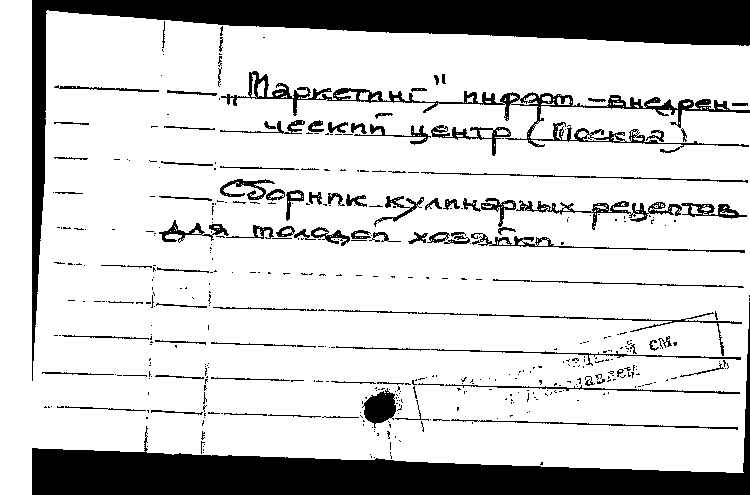 „Маркетинг," информ.-внедрен-
ческий центр (Москва).
Сборник кулинарных рецептов
для молодой хозяйки.
см.